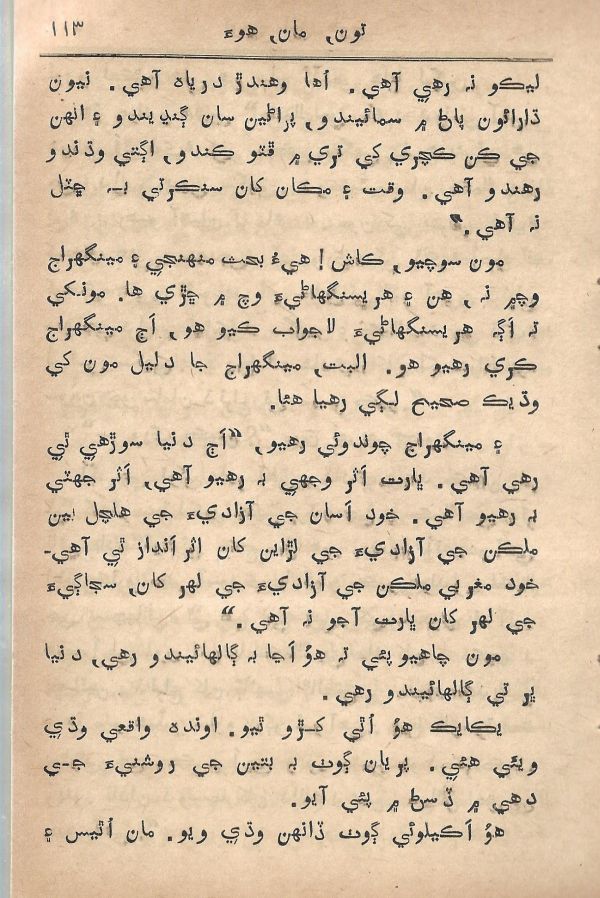 تون، مان، هوءَ ١١٣
ليڪو نہ رهي آهي. اُها وهندڙ درياهہ آهي. نيون
ڌارائون پاڻ ۾ سمائيندو، پراڻين سان ڳنڍيندو ۽ انهن
جي ڪن ڪچري کي تري ۾ ڦٽو ڪندو، اڳتي وڌندو
رهندو آهي. وقت ۽ مڪان کان سنڪرتي بہ ڇٽل
نہ آهي.“
مون سوچيو، ڪاش! هيءُ بحث منهنجي ۽ مينگهراج
وچ ۾ نہ، هن ۽ هريسنگهاڻيءَ وچ ۾ ڇڙي ها. مونکي
تہ اڳہ هريسنگهاڻيءَ لاجواب ڪيو هو، اڄ مينگهراج
ڪري رهيو هو. البت، مينگهراج جا دليل مون کي
وڌيڪ صحيح لڳي رهيا هئا.
۽ مينگهراج چوندوئي رهيو، ”اڄ دنيا سوڙهي ٿي
رهي آهي. ڀارت اَثر وجهي بہ رهيو آهي، اَثر جهٽي
بہ رهيو آهي. خود اَسان جي آزاديءَ جي هلچل ٻين
ملڪن جي آزاديءَ جي لڙاين کان اثرانداز ٿي آهي۔
خود مغربي ملڪن جي آزاديءَ جي لهر کان، سجاڳيءَ
جي لهر کان ڀارت آجو نہ آهي.“
مون چاهيو پئي تہ هوُ اَڃا بہ ڳالهائيندو رهي، دنيا
ڀر تي ڳالهائيندو رهي.
يڪايڪ هوُ اُٿي کڙو ٿيو. اونده واقعي وڌي
ويئي هئي. پريان ڳوٺ بہ بتين جي روشنيءَ جي
دهي ۾ ڏسڻ ۾ پئي آيو.
هوُ اَڪيلوئي ڳوٺ ڏانهن وڌي ويو. مان اُٿيس ۽